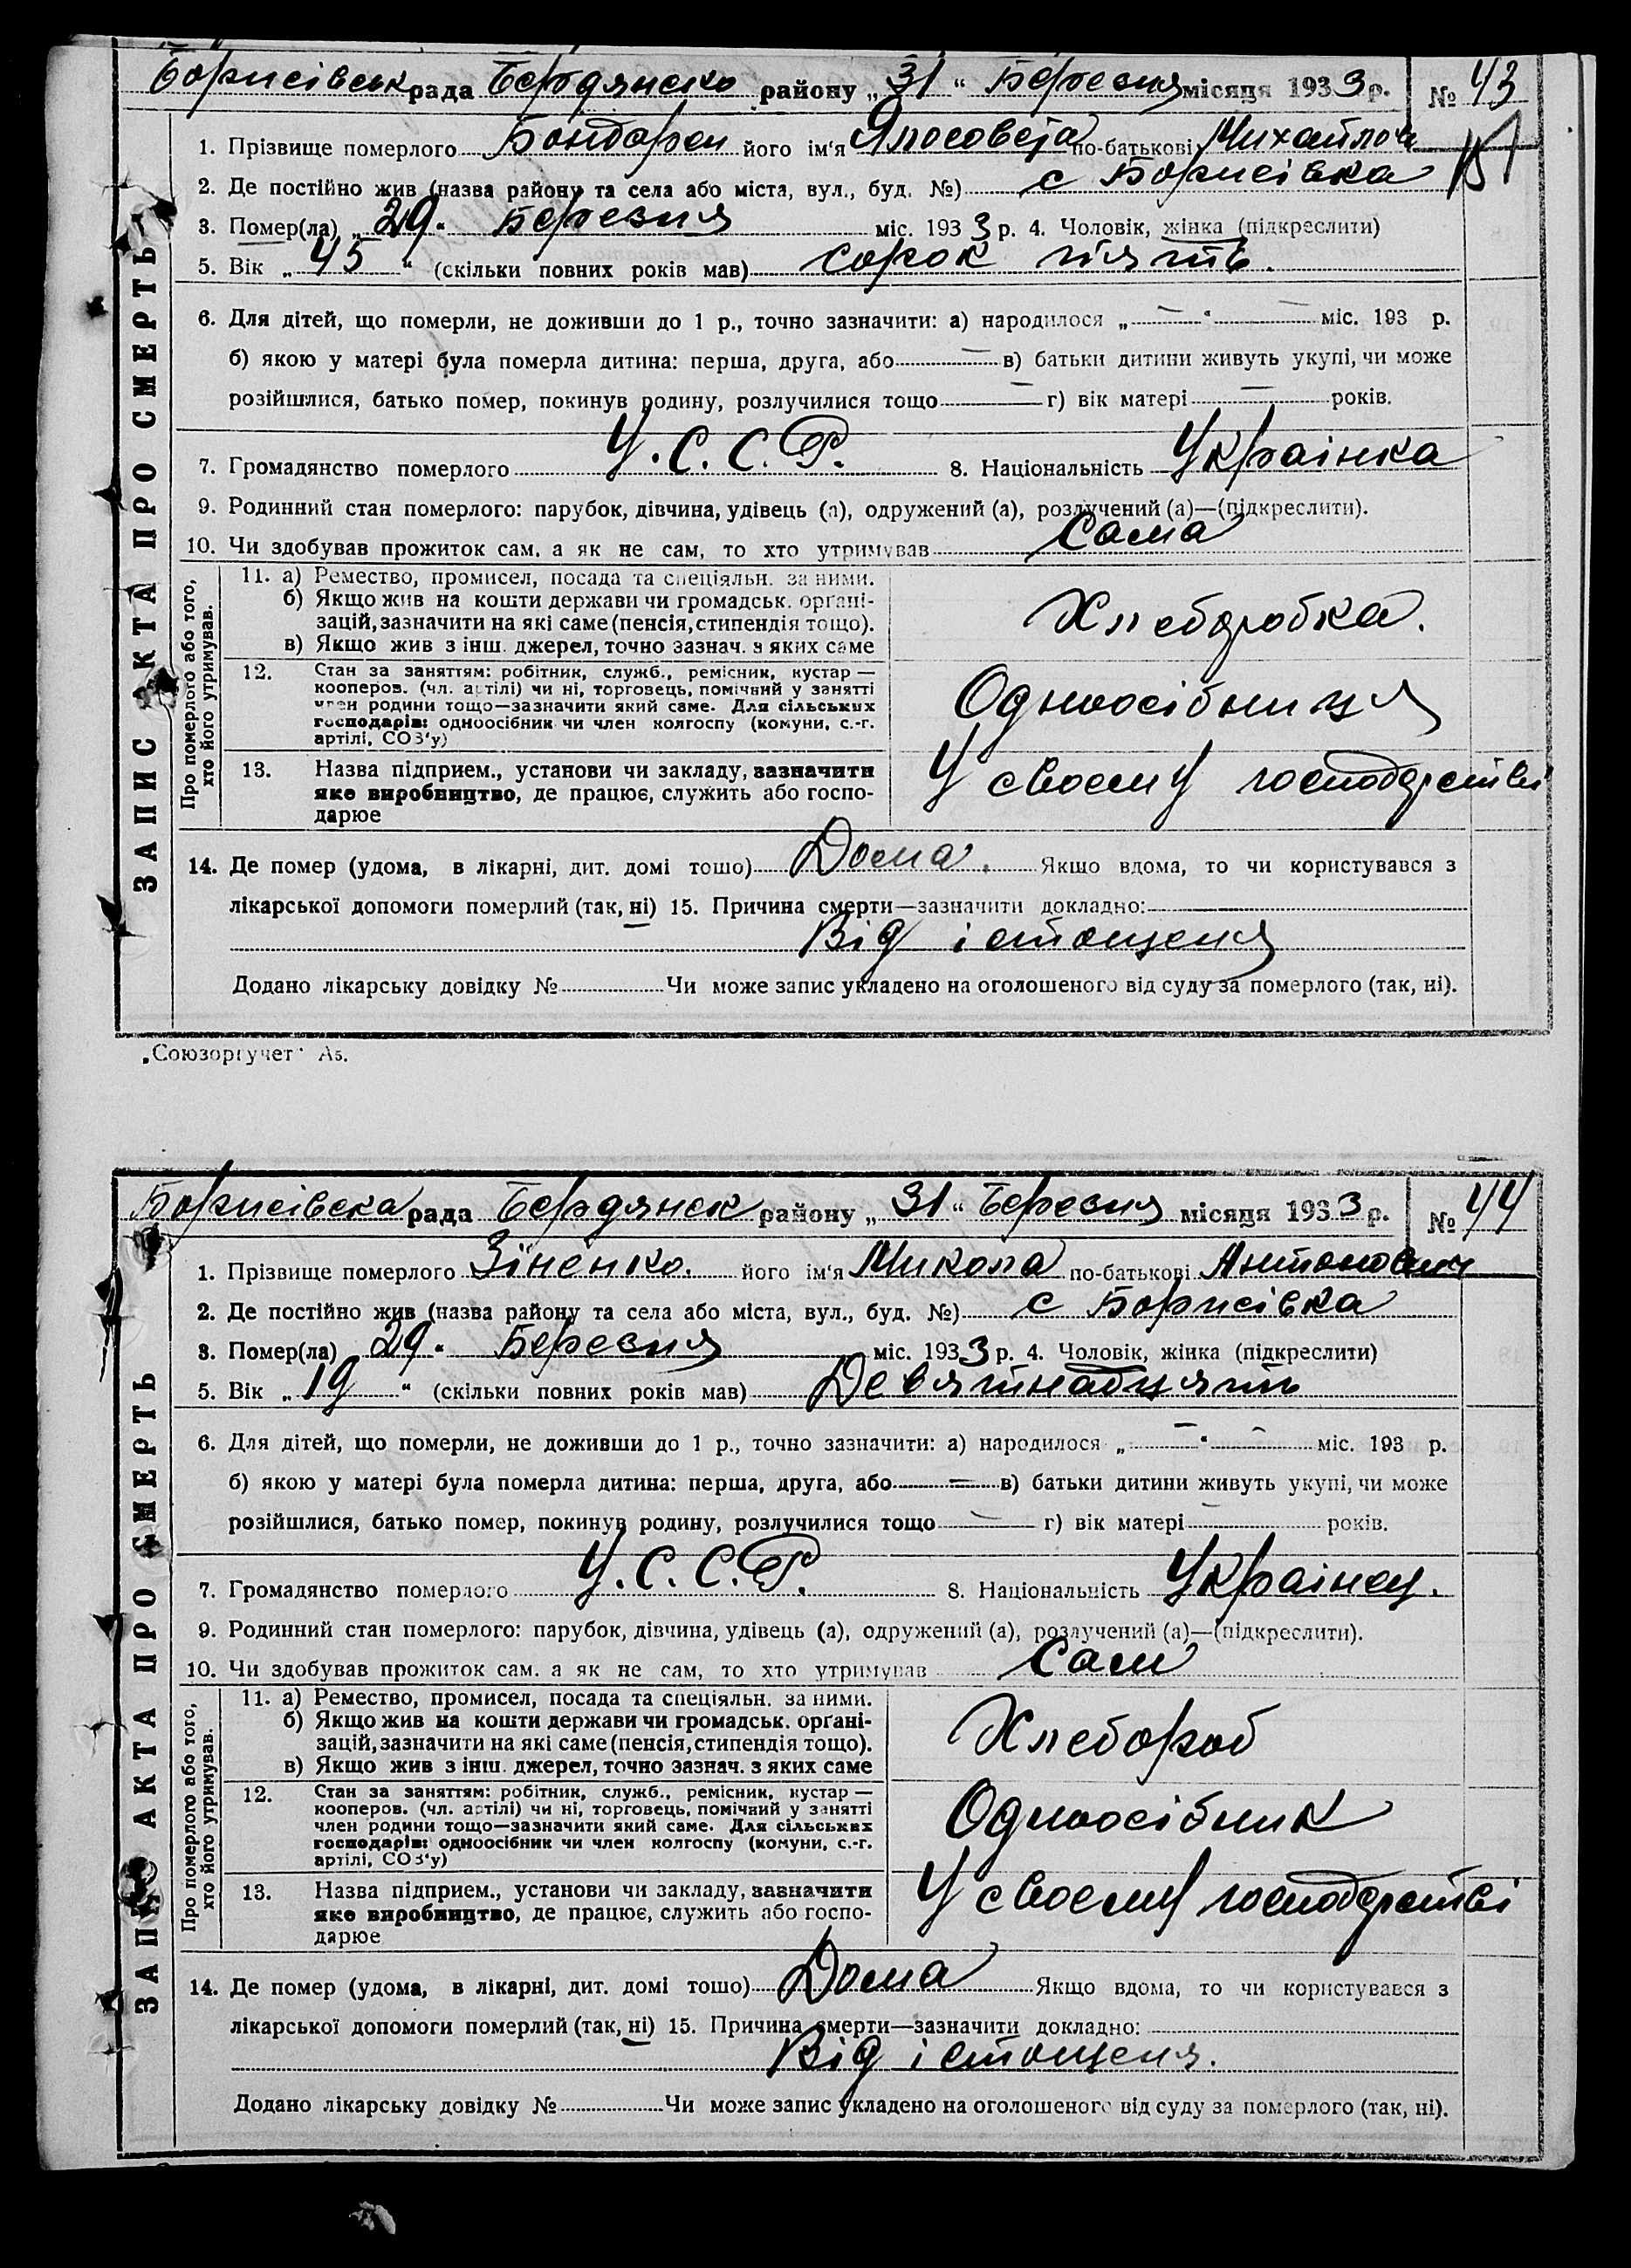 Борисівськ рада Бердянско району „31“ Березня місяця 1933 р. № 43
1. Прізвище померлого його ім'я по-батькові Михайлов
2. Де постійно жив (назва району та села або міста, вул., буд. №) с Борисівка
3. Помер(ла) „29“ Березня міс. 1933 р. 4. Чоловік, жінка (підкреслити)
5. Вік „45“ (скільки повних років мав) сорок пять.
6. Для дітей, що померли, не доживши до 1 р., точно зазначити: а) народилося „—“ — міс. 193 р.
б) якою у матері була померла дитина: перша, друга, або — в) батьки дитини живуть укупі, чи може
розійшлися, батько помер, покинув родину, розлучилися тощо — г) вік матері — років.
7. Громадянство померлого У.С.С.Р. 8. Національність Украінка
9. Родинний стан померлого: парубок, дівчина, удівець (а), одружений (а), розлучений (а)—(підкреслити).
10. Чи здобував прожиток сам, а як не сам, то хто утримував Сама
Про померлого або того, хто його утримував.
11. а) Ремество, промисел, посада та спеціяльн. за ними.
б) Якщо жив на кошти держави чи громадськ. органі-
зацій, зазначити на які саме (пенсія, стипендія тощо).
в) Якщо жив з інш. джерел, точно зазнач. з яких саме
Хлебдробка.
12. Стан за заняттям: робітник, служб., ремісник, кустар —
кооперов. (чл. артілі) чи ні, торговець, помічний у занятті
член родини тощо—зазначити який саме. Для сільських
господарів: одноосібник чи член колгоспу (комуни, с.-г.
артілі, СОЗ'у)
Одноосібниця
13. Назва підприєм., установи чи закладу, зазначити
яке виробництво, де працює, служить або госпо-
дарює
У своему господрстві
14. Де помер (удома, в лікарні, дит. домі тощо) Дома. Якщо вдома, то чи користувався з
лікарської допомоги померлий (так, ні) 15. Причина смерти—зазначити докладно:
Від істощеня
Додано лікарську довідку № Чи може запис укладено на оголошеного від суду за померлого (так, ні).
ЗАПИС АКТА ПРО СМЕРТЬ
„Союзоргучет“ А5.
Борисівска рада Бердянск району „31“ Березня місяця 1933 р. № 44
1. Прізвище померлого Зіненко. його ім'я Микола по-батькові Антонович
2. Де постійно жив (назва району та села або міста, вул., буд. №) с Борисівка
3. Помер(ла) 29“ Березня міс. 1933 р. 4. Чоловік, жінка (підкреслити)
5. Вік „19“ (скільки повних років мав) Девятнадцять
6. Для дітей, що померли, не доживши до 1 р., точно зазначити: а) народилося „—“ — міс. 193 р.
б) якою у матері була померла дитина: перша, друга, або — в) батьки дитини живуть укупі, чи може
розійшлися, батько помер, покинув родину, розлучилися тощо — г) вік матері — років.
7. Громадянство померлого У.С.С.Р. 8. Національність Украінец.
9. Родинний стан померлого: парубок, дівчина, удівець (а), одружений (а), розлучений (а)—(підкреслити).
10. Чи здобував прожиток сам, а як не сам, то хто утримував Сам
Про померлого або того, хто його утримував.
11. а) Ремество, промисел, посада та спеціяльн. за ними.
б) Якщо жив на кошти держави чи громадськ. органі-
зацій, зазначити на які саме (пенсія, стипендія тощо).
в) Якщо жив з інш. джерел, точно зазнач. з яких саме
Хлебороб
12. Стан за заняттям: робітник, служб., ремісник, кустар —
кооперов. (чл. артілі) чи ні, торговець, помічний у занятті
член родини тощо—зазначити який саме. Для сільських
господарів: одноосібник чи член колгоспу (комуни, с.-г.
артілі, СОЗ'у)
Одноосібник
13. Назва підприєм., установи чи закладу, зазначити
яке виробництво, де працює, служить або госпо-
дарює
У своему господрстві
14. Де помер (удома, в лікарні, дит. домі тощо) Дома Якщо вдома, то чи користувався з
лікарської допомоги померлий (так, ні) 15. Причина смерти—зазначити докладно:
Від істощеня.
Додано лікарську довідку № Чи може запис укладено на оголошеного від суду за померлого (так, ні).
ЗАПИС АКТА ПРО СМЕРТЬ